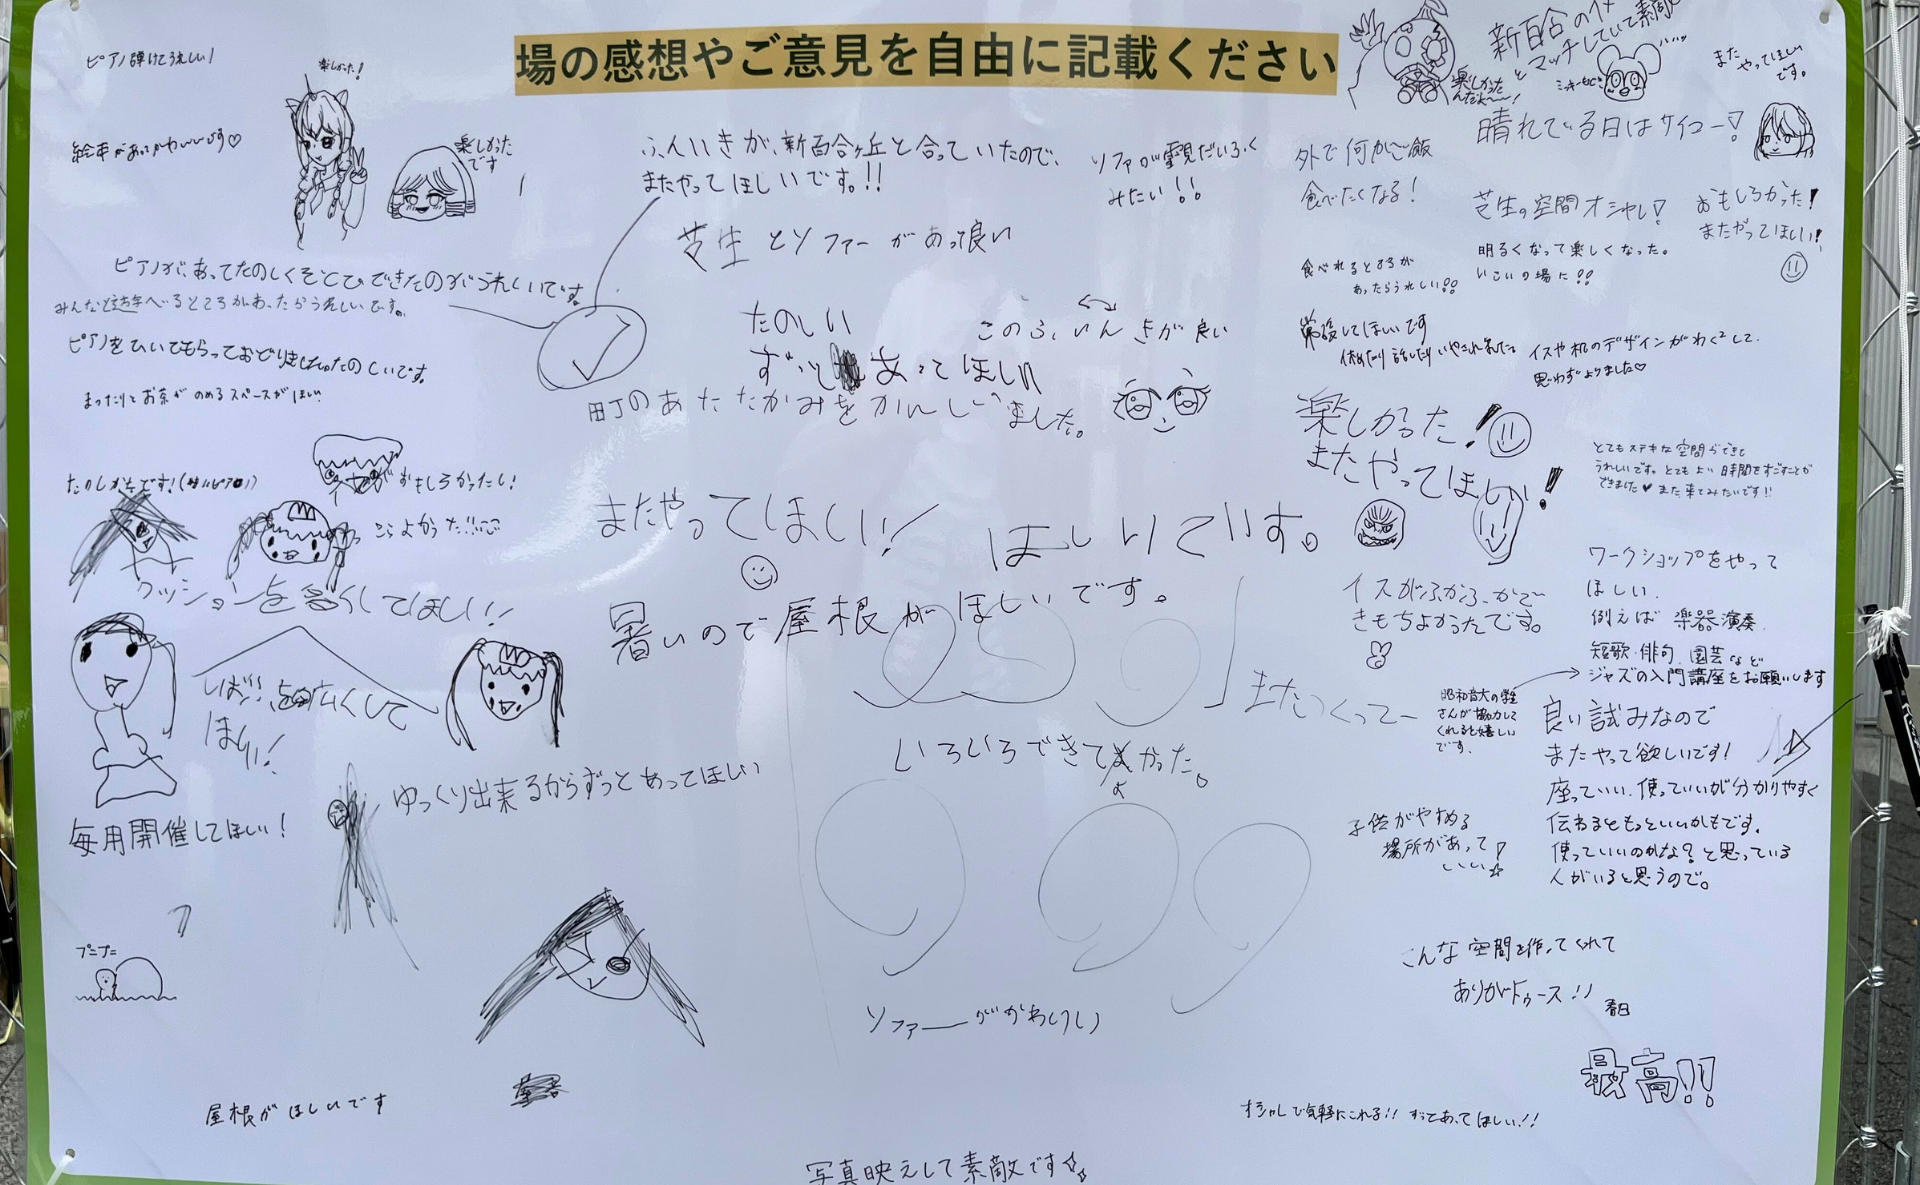 場の感想やご意見を自由に記載ください
ピアノ弾けてうれしい!
楽しかった!
絵本があってかわいいです♡
楽しかった
です
ふんいきが、新百合ヶ丘と合っていたので、
またやってほしいです。!!
ソファが雪見だいふく
みたい!!
芝生とソファーがあって良い
ピアノが、あってたのしくそとでひできたのがうれしいです。
みんなと遊べるところがあったらうれしいです。
ピアノをひいてもらっておどりましたたのしいです。
まったりとお茶がのめるスペースがほしい
たのしい
ずっとあってほしい
このふいんきが良い
町のあたたかみをかんじいました。
新百合のイメ
とマッチしていて素敵
楽しかった
んだよ〜〜!
ミッキーもどき
また
やってほしい
です。
晴れている日はサイコー!
外で何かご飯
食べたくなる!
芝生の空間オシャレ!
おもしろかった!
またやってほしい!
食べれるところが
あったらうれしい!!
明るくなって楽しくなった。
いこいの場に!!
常設してほしいです
休めたり話したりいやされました
イスや机のデザインがわく²して、
思わずよりました♡
楽しかった!
またやってほしい!
とてもステキな空間ができて
うれしいです。とてもよい時間をすごすことが
できました♥また来てみたいです!!
たのしかったです!(特にピアノ)
おもしろかったし!
クッションを多くしてほしい!
またやってほしい!
ほしいです。
暑いので屋根がほしいです。
しばふを広くして
ほしい!
イスがふかふかで〜
きもちよかったです。
ワークショップをやって
ほしい。
例えば 楽器演奏、
短歌・俳句、園芸など
ジャズの入門講座をお願いします
昭和音大の学生
さんが協力して
くれると嬉しい
です。
またつくってー
良い試みなので
またやって欲しいです!
座っていい、使っていいが分かりやすく
伝わるともっといいかもです。
使っていいのかな?と思っている
人がいると思うので。
いろいろできてよかった。
ゆっくり出来るからずっとあってほしい
毎月開催してほしい!
子供がやすめる
場所があって
いい!☆
プニプニ
こんな空間を作ってくれて
ありがトゥース!!
春日
ソファーがかわいい
最高!!
屋根がほしいです
オシャレで気軽にこれる!! ずっとあってほしい!!
写真映えして素敵です☆